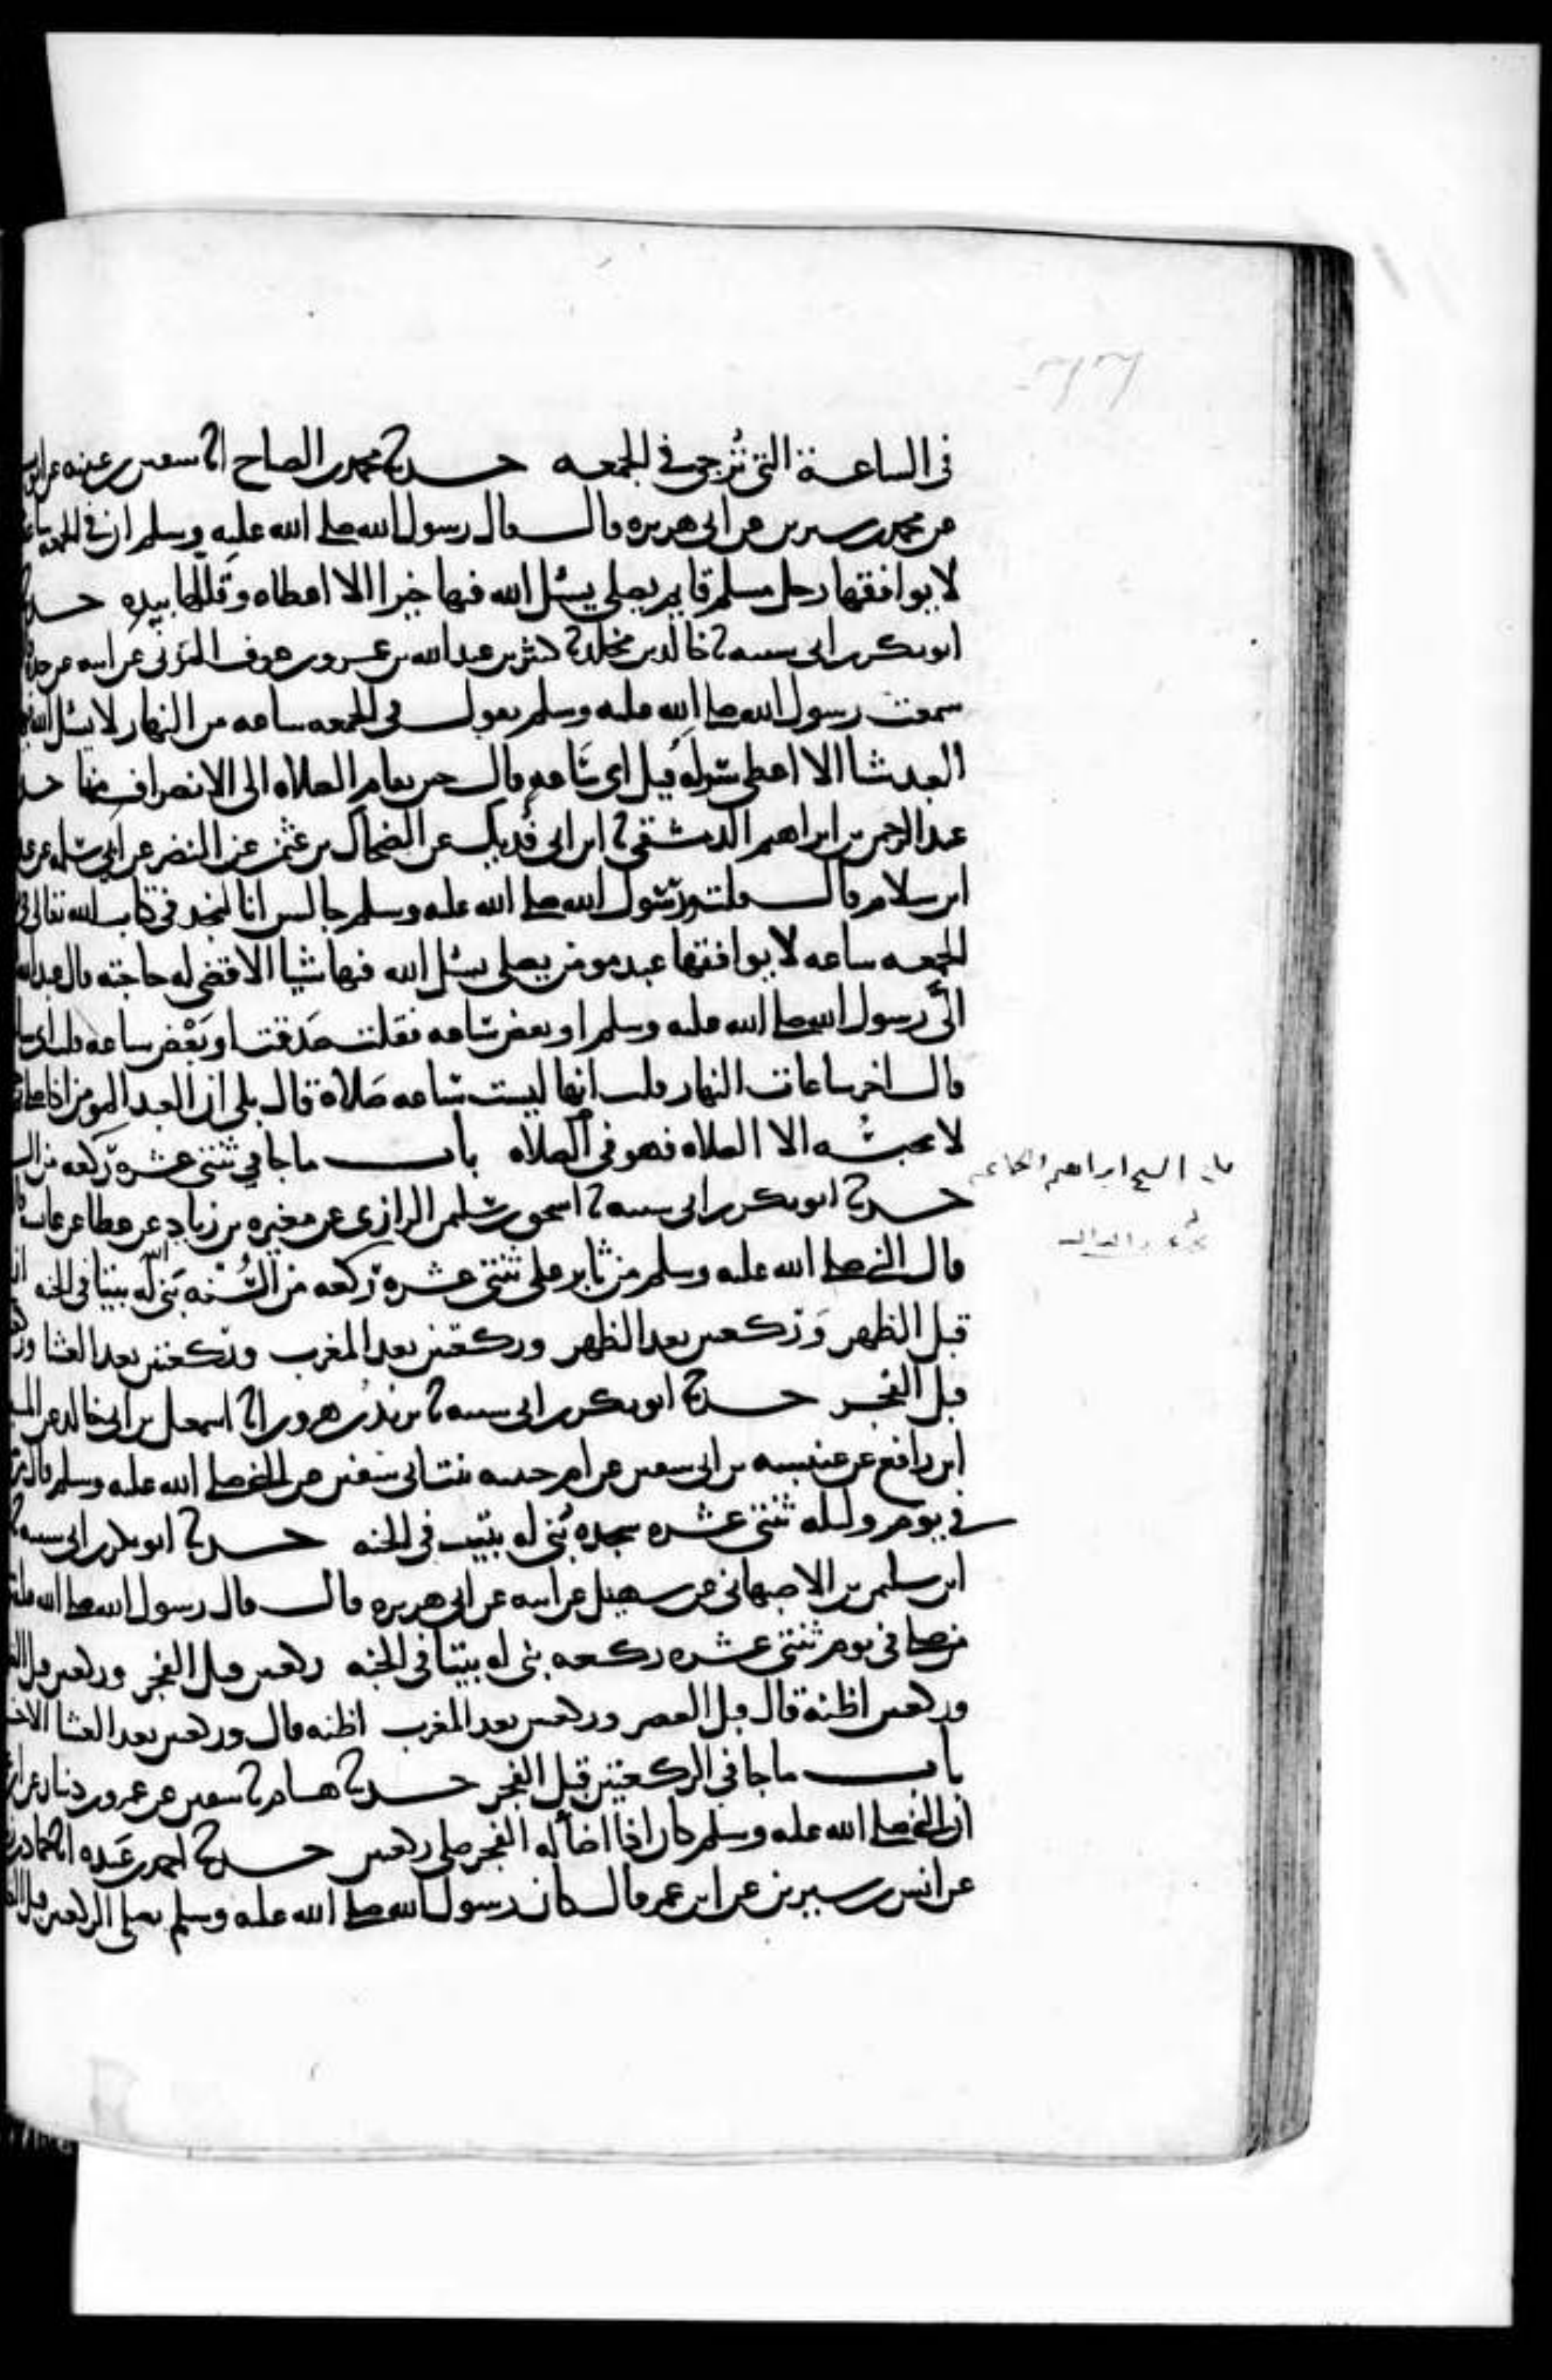 في الساعة التي تُرجى في الجمعه حدثنا محمد بن الصباح انا سفين بن عيينه عن ايوب
عن محمد بن سيرين عن ابي هريره قال قال رسول الله صلى الله عليه وسلم ان في الجمعه ساعة
لا يوافقها رجل مسلم قايم يصلي يسئل الله فيها خيرا الا اعطاه وقللها بيده حدثنا
ابو بكر بن ابي شيبه نا خالد بن مخلد نا كثير بن عبد الله بن عمرو بن عوف المزني عن ابيه عن جده
سمعت رسول الله صلى الله عليه وسلم يقول في الجمعه ساعه من النهار لا يسئل الله فيها
العبد شيا الا اعطي سوله قيل اي ساعه قال حين تقام الصلاه الى الانصراف منها حدثنا
عبد الرحمن بن ابراهيم الدمشقي نا ابن ابي فديك عن الضحاك بن عثمن عن ابي النضر عن ابي سلمه عن عبد
ابن سلام قال قلت ورسول الله صلى الله عليه وسلم جالس انا لنجد في كتاب الله تعالى في
الجمعه ساعه لا يوافقها عبد مومن يصلي يسئل الله فيها شيا الا قضى له حاجته قال عبد الله
اليَّ رسول الله صلى الله عليه وسلم او بعض ساعه فقلت صدقت او بعض ساعه قلت اي
قال اخر ساعات النهار قلت انها ليست ساعه صلاة قال بلى ان العبد المومن اذا صلى
لا يحبسه الا الصلاه فهو في الصلاه باب ما جا في ثنتي عشره ركعه من السنه
حدثنا ابو بكر بن ابي شيبه نا اسحق بن سليمن الرازي عن مغيره بن زياد عن عطا عن عايشه
قال النبي صلى الله عليه وسلم من ثابر على ثنتي عشره ركعه من السُّنه بَنى الله له بيتا في الجنه
قبل الظهر وركعتين بعد الظهر وركعتين بعد المغرب وركعتين بعد العشا
قبل الفجر حدثنا ابو بكر بن ابي شيبه نا يزيد بن هرون انا اسمعيل بن ابي خالد عن المسيب
ابن رافع عن عنبسه بن ابي سفين عن ام حبيبه بنت ابي سفين عن النبي صلى الله عليه وسلم قال من
في يوم وليله ثنتي عشره سجده بُني له بيت في الجنه حدثنا ابو بكر بن ابي شيبه نا
ابن سليمن بن الاصبهاني عن سهيل عن ابيه عن ابي هريره قال قال رسول الله صلى الله عليه
من صلى في يوم ثنتي عشره ركعه بني له بيتا في الجنه ركعتين قبل الفجر وركعتين قبل
وركعتين اظنه قال قبل العصر وركعتين بعد المغرب اظنه قال وركعتين بعد العشا
باب ما جا في الركعتين قبل الفجر حدثنا هشام نا سفين عن عمرو بن دينار عن
ان النبي صلى الله عليه وسلم كان اذا اضا له الفجر صلى ركعتين حدثنا احمد بن عَبده انا حماد بن
عن انس بن سيرين عن ابن عمر قال كان رسول الله صلى الله عليه وسلم يصلي الركعتين قبل
الشيخ ابراهيم